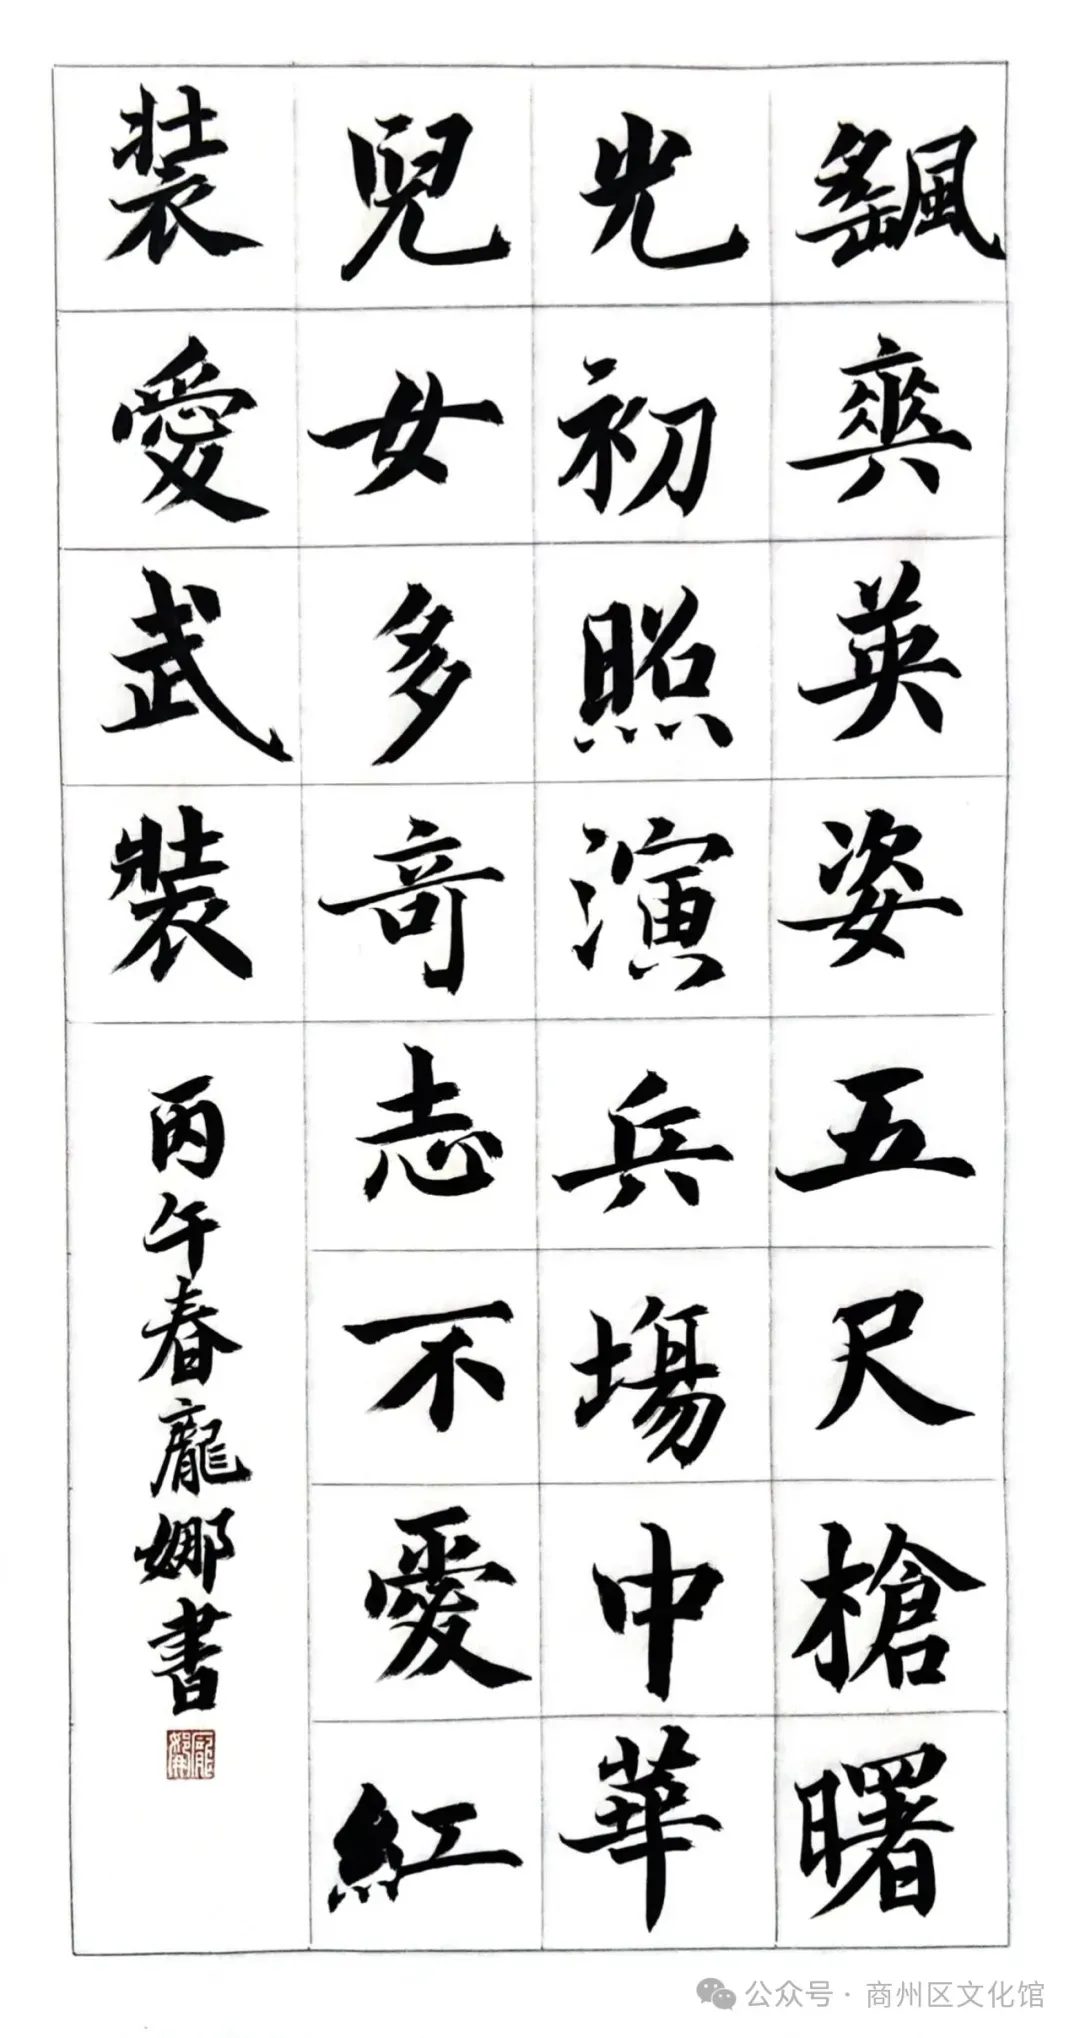 颻爽英姿五尺槍曙
光初照演兵場中華
兒女多奇志不愛紅
裝愛武裝
丙午春龐娜書
龐娜
公众号 · 商州区文化馆